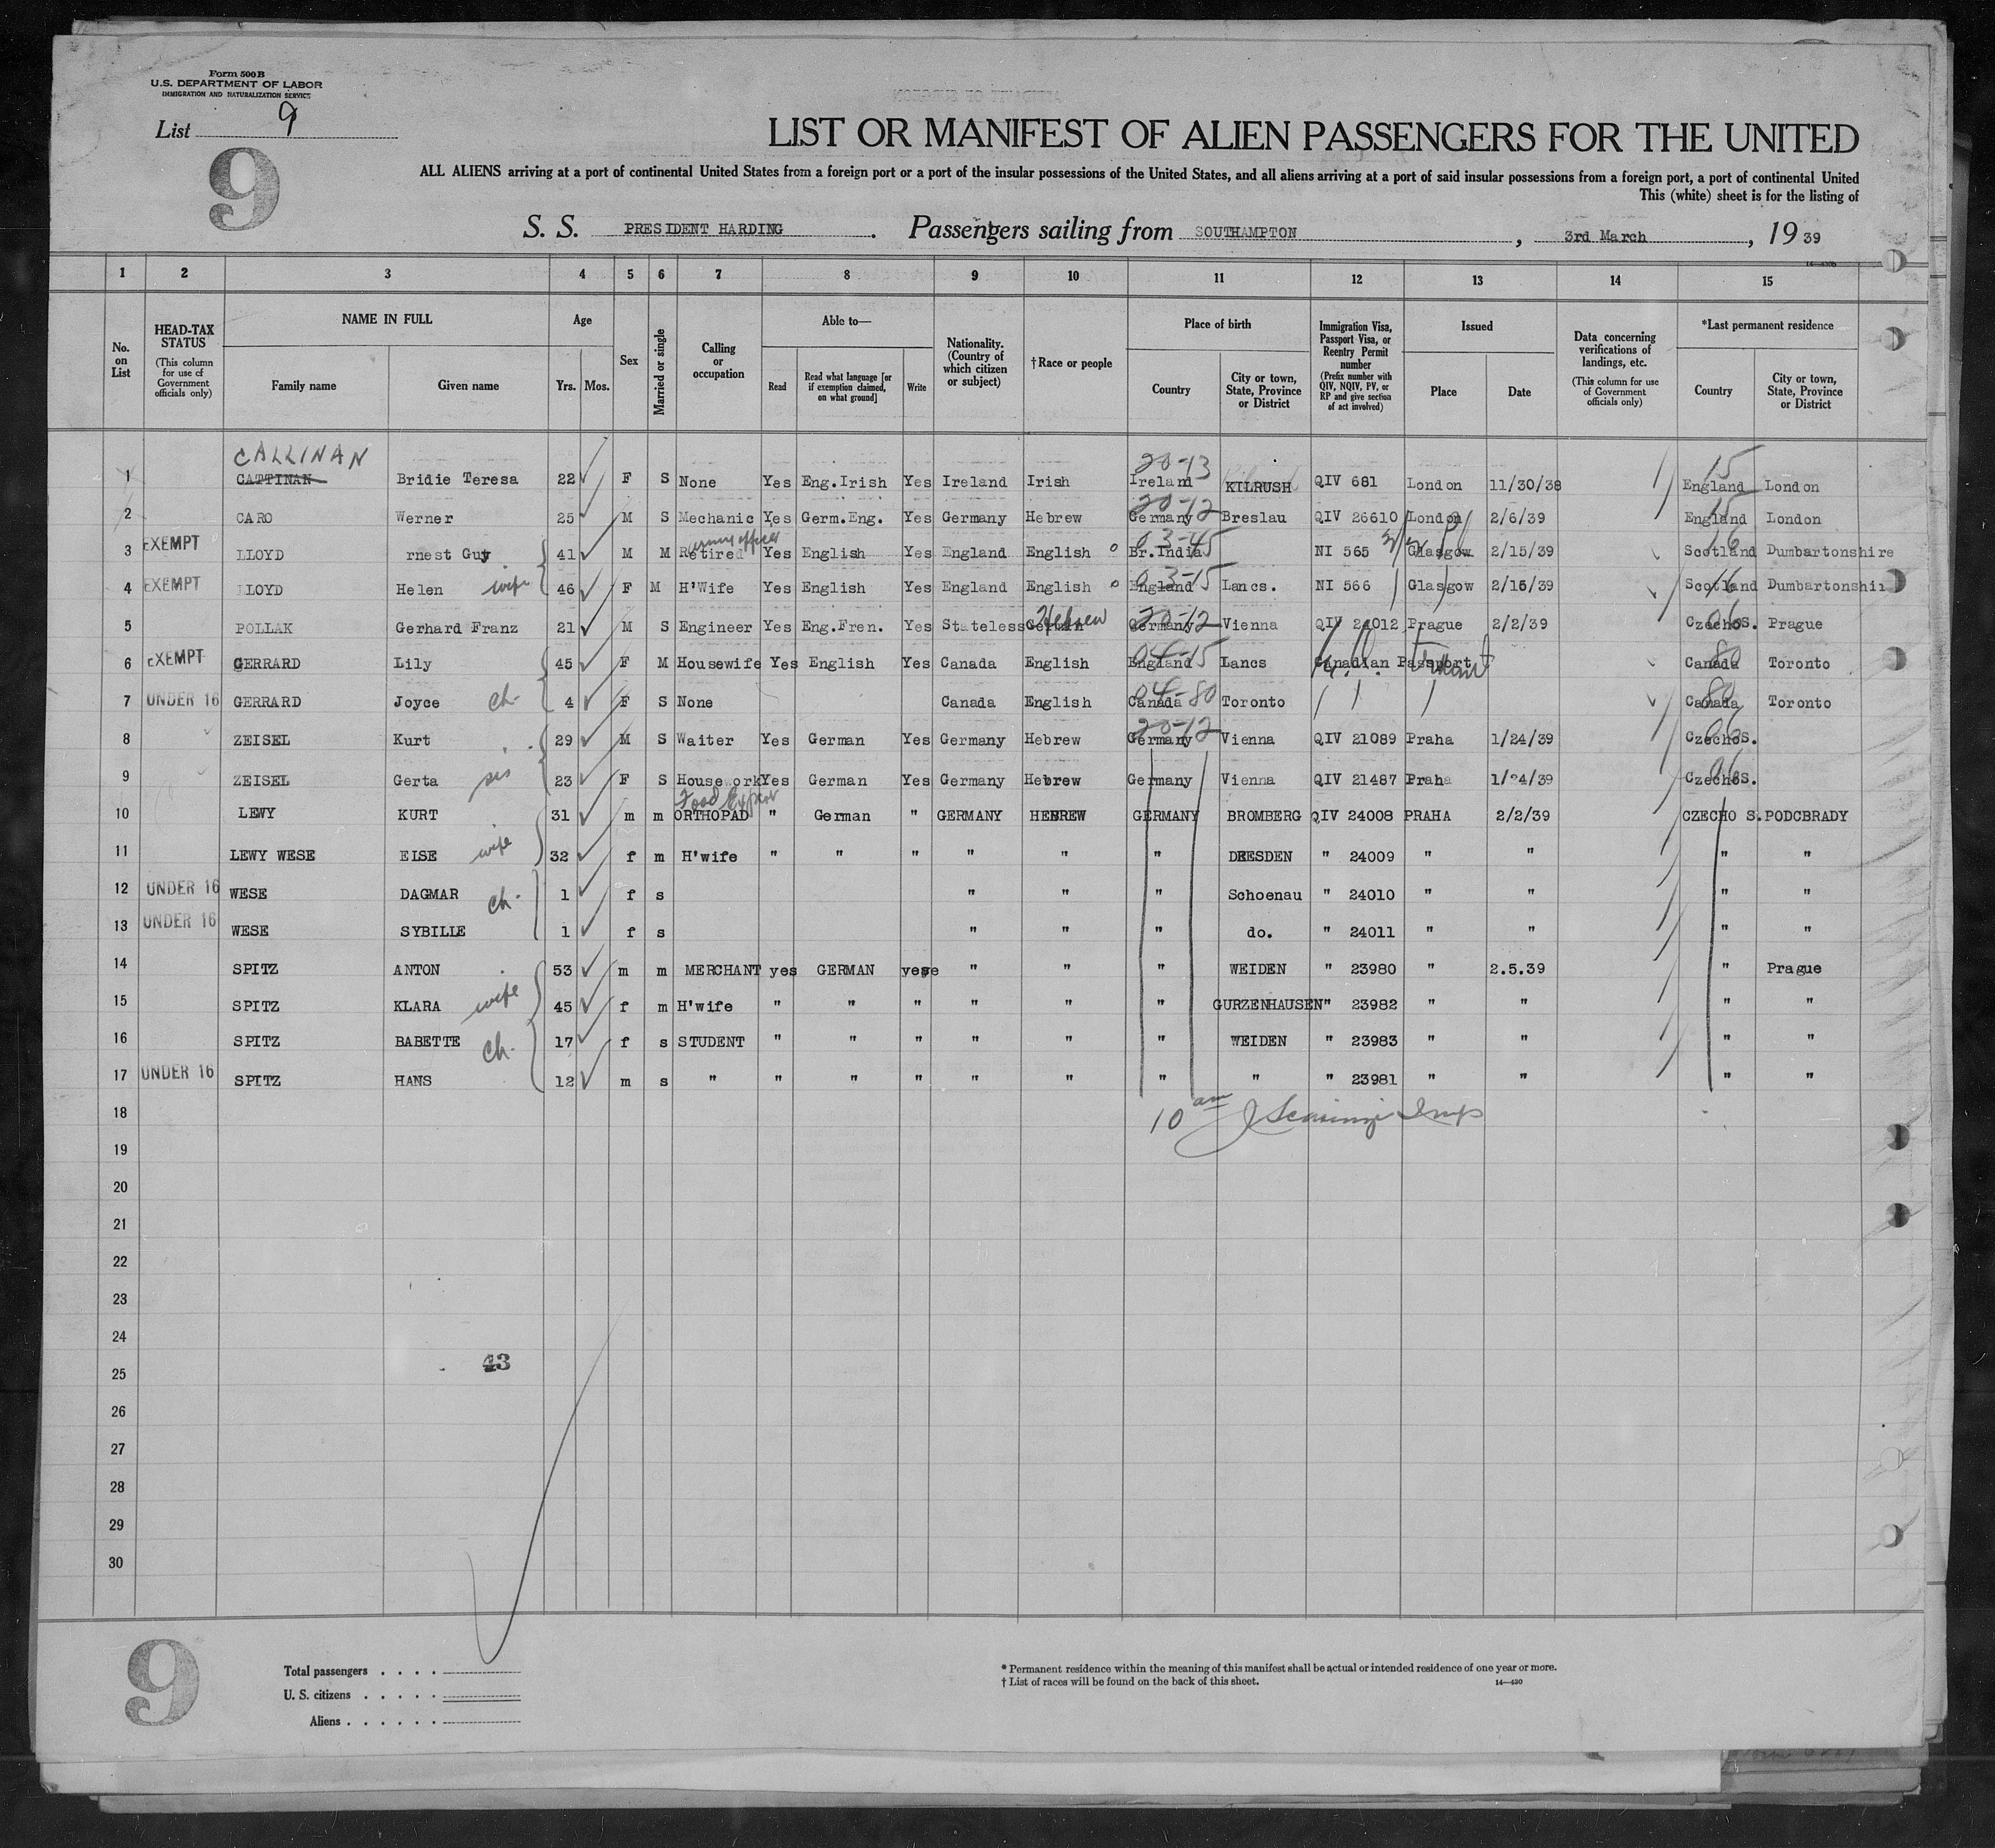 Form 500 B
U.S. DEPARTMENT OF LABOR
IMMIGRATION AND NATURALIZATION SERVICE
List 9
9
LIST OR MANIFEST OF ALIEN PASSENGERS FOR THE UNITED
ALL ALIENS arriving at a port of continental United States from a foreign port or a port of the insular possessions of the United States, and all aliens arriving at a port of said insular possessions from a foreign port, a port of continental United
This (white) sheet is for the listing of
S. S. PRESIDENT HARDING. Passengers sailing from SOUTHAMPTON, 3rd March, 19 39
1 2 3 4 5 6 7 8 9 10 11 12 13 14 15
No. on List
HEAD-TAX STATUS (This column for use of Government officials only)
NAME IN FULL Family name Given name
Age Yrs. Mos.
Sex
Married or single
Calling or occupation
Able to— Read Read what language [or if exemption claimed, on what ground] Write
Nationality. (Country of which citizen or subject)
†Race or people
Place of birth Country City or town, State, Province or District
Immigration Visa, Passport Visa, or Reentry Permit number (Prefix number with QIV, NQIV, PV, or RP and give section of act involved)
Issued Place Date
Data concerning verifications of landings, etc. (This column for use of Government officials only)
*Last permanent residence Country City or town, State, Province or District
CALLINAN 20-13 15
1 CATTINAN Bridie Teresa 22 F S None Yes Eng.Irish Yes Ireland Irish Ireland KILRUSH QIV 681 London 11/30/38 England London
20-12 15
2 CARO Werner 25 M S Mechanic Yes Germ.Eng. Yes Germany Hebrew Germany Breslau QIV 26610 London 2/6/39 England London
army officer 03-45 16
3 EXEMPT LLOYD rnest Guy 41 M M Retired Yes English Yes England English Br.India NI 565 Glasgow 2/15/39 Scotland Dumbartonshire
03-15 16
4 EXEMPT LLOYD Helen wife 46 F M H'Wife Yes English Yes England English England Lancs. NI 566 Glasgow 2/15/39 Scotland Dumbartonshir
Hebrew 20-12 06
5 POLLAK Gerhard Franz 21 M S Engineer Yes Eng.Fren. Yes Stateless German Germany Vienna QIV 24012 Prague 2/2/39 CzechoS. Prague
04-15 80
6 EXEMPT GERRARD Lily 45 F M Housewife Yes English Yes Canada English England Lancs Canadian Passport Canada Toronto
04-80 80
7 UNDER 16 GERRARD Joyce ch. 4 F S None Canada English Canada Toronto Canada Toronto
20-12 06
8 ZEISEL Kurt 29 M S Waiter Yes German Yes Germany Hebrew Germany Vienna QIV 21089 Praha 1/24/39 CzechoS.
06
9 ZEISEL Gerta sis 23 F S Housework Yes German Yes Germany Hebrew Germany Vienna QIV 21487 Praha 1/24/39 CzechoS.
Food Expert
10 LEWY KURT 31 m m ORTHOPAD " German " GERMANY HEBREW GERMANY BROMBERG QIV 24008 PRAHA 2/2/39 CZECHO S. PODCBRADY
11 LEWY WESE ELSE wife 32 f m H'wife " " " " " " DRESDEN " 24009 " " " "
12 UNDER 16 WESE DAGMAR ch. 1 f s " " " Schoenau " 24010 " " " "
13 UNDER 16 WESE SYBILLE 1 f s " " " do. " 24011 " " " "
14 SPITZ ANTON 53 m m MERCHANT yes GERMAN yes " " " WEIDEN " 23980 " 2.5.39 " Prague
15 SPITZ KLARA wife 45 f m H'wife " " " " " " GURZENHAUSEN " 23982 " " " "
16 SPITZ BABETTE ch. 17 f s STUDENT " " " " " " WEIDEN " 23983 " " " "
17 UNDER 16 SPITZ HANS 12 m s " " " " " " " " " 23981 " " " "
18 10 am
19
20
21
22
23
24
43
25
26
27
28
29
30
9
Total passengers . . . .
U. S. citizens . . . . .
Aliens . . . . . .
* Permanent residence within the meaning of this manifest shall be actual or intended residence of one year or more.
† List of races will be found on the back of this sheet.
14—430